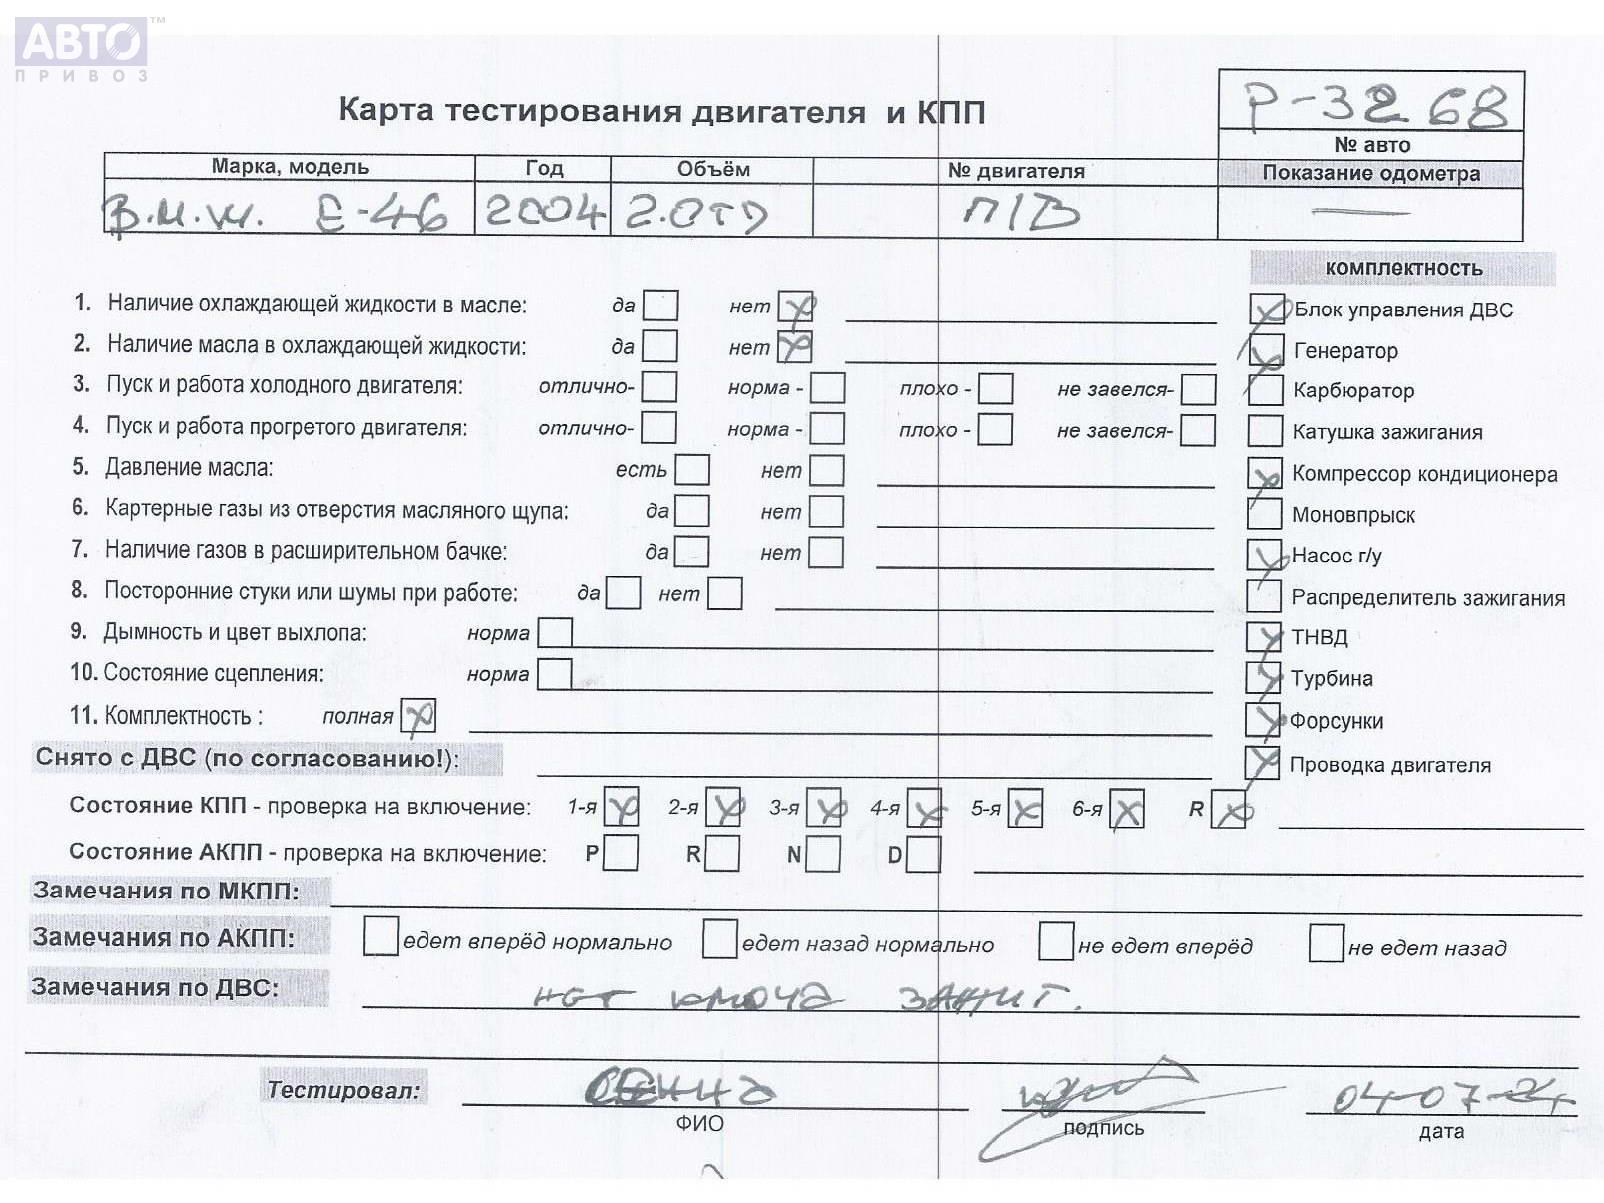 АВТО ™
ПРИВОЗ
Р-3268
Карта тестирования двигателя и КПП
№ авто
Марка, модель Год Объём № двигателя Показание одометра
B.M.W. E-46 2004 2.0TD П/В —
комплектность
1. Наличие охлаждающей жидкости в масле: да нет x Блок управления ДВС x
2. Наличие масла в охлаждающей жидкости: да нет x Генератор x
3. Пуск и работа холодного двигателя: отлично- норма - плохо - не завелся- Карбюратор
4. Пуск и работа прогретого двигателя: отлично- норма - плохо - не завелся- Катушка зажигания
5. Давление масла: есть нет x Компрессор кондиционера
6. Картерные газы из отверстия масляного щупа: да нет Моновпрыск
7. Наличие газов в расширительном бачке: да нет x Насос г/у
8. Посторонние стуки или шумы при работе: да нет Распределитель зажигания
9. Дымность и цвет выхлопа: норма x ТНВД
10. Состояние сцепления: норма x Турбина
11. Комплектность : полная x x Форсунки
Снято с ДВС (по согласованию!): x Проводка двигателя
Состояние КПП - проверка на включение: 1-я x 2-я x 3-я x 4-я x 5-я x 6-я x R x
Состояние АКПП - проверка на включение: P R N D
Замечания по МКПП:
Замечания по АКПП: едет вперёд нормально едет назад нормально не едет вперёд не едет назад
Замечания по ДВС: нет ключа зажиг.
Тестировал:
04-07-24
ФИО подпись дата